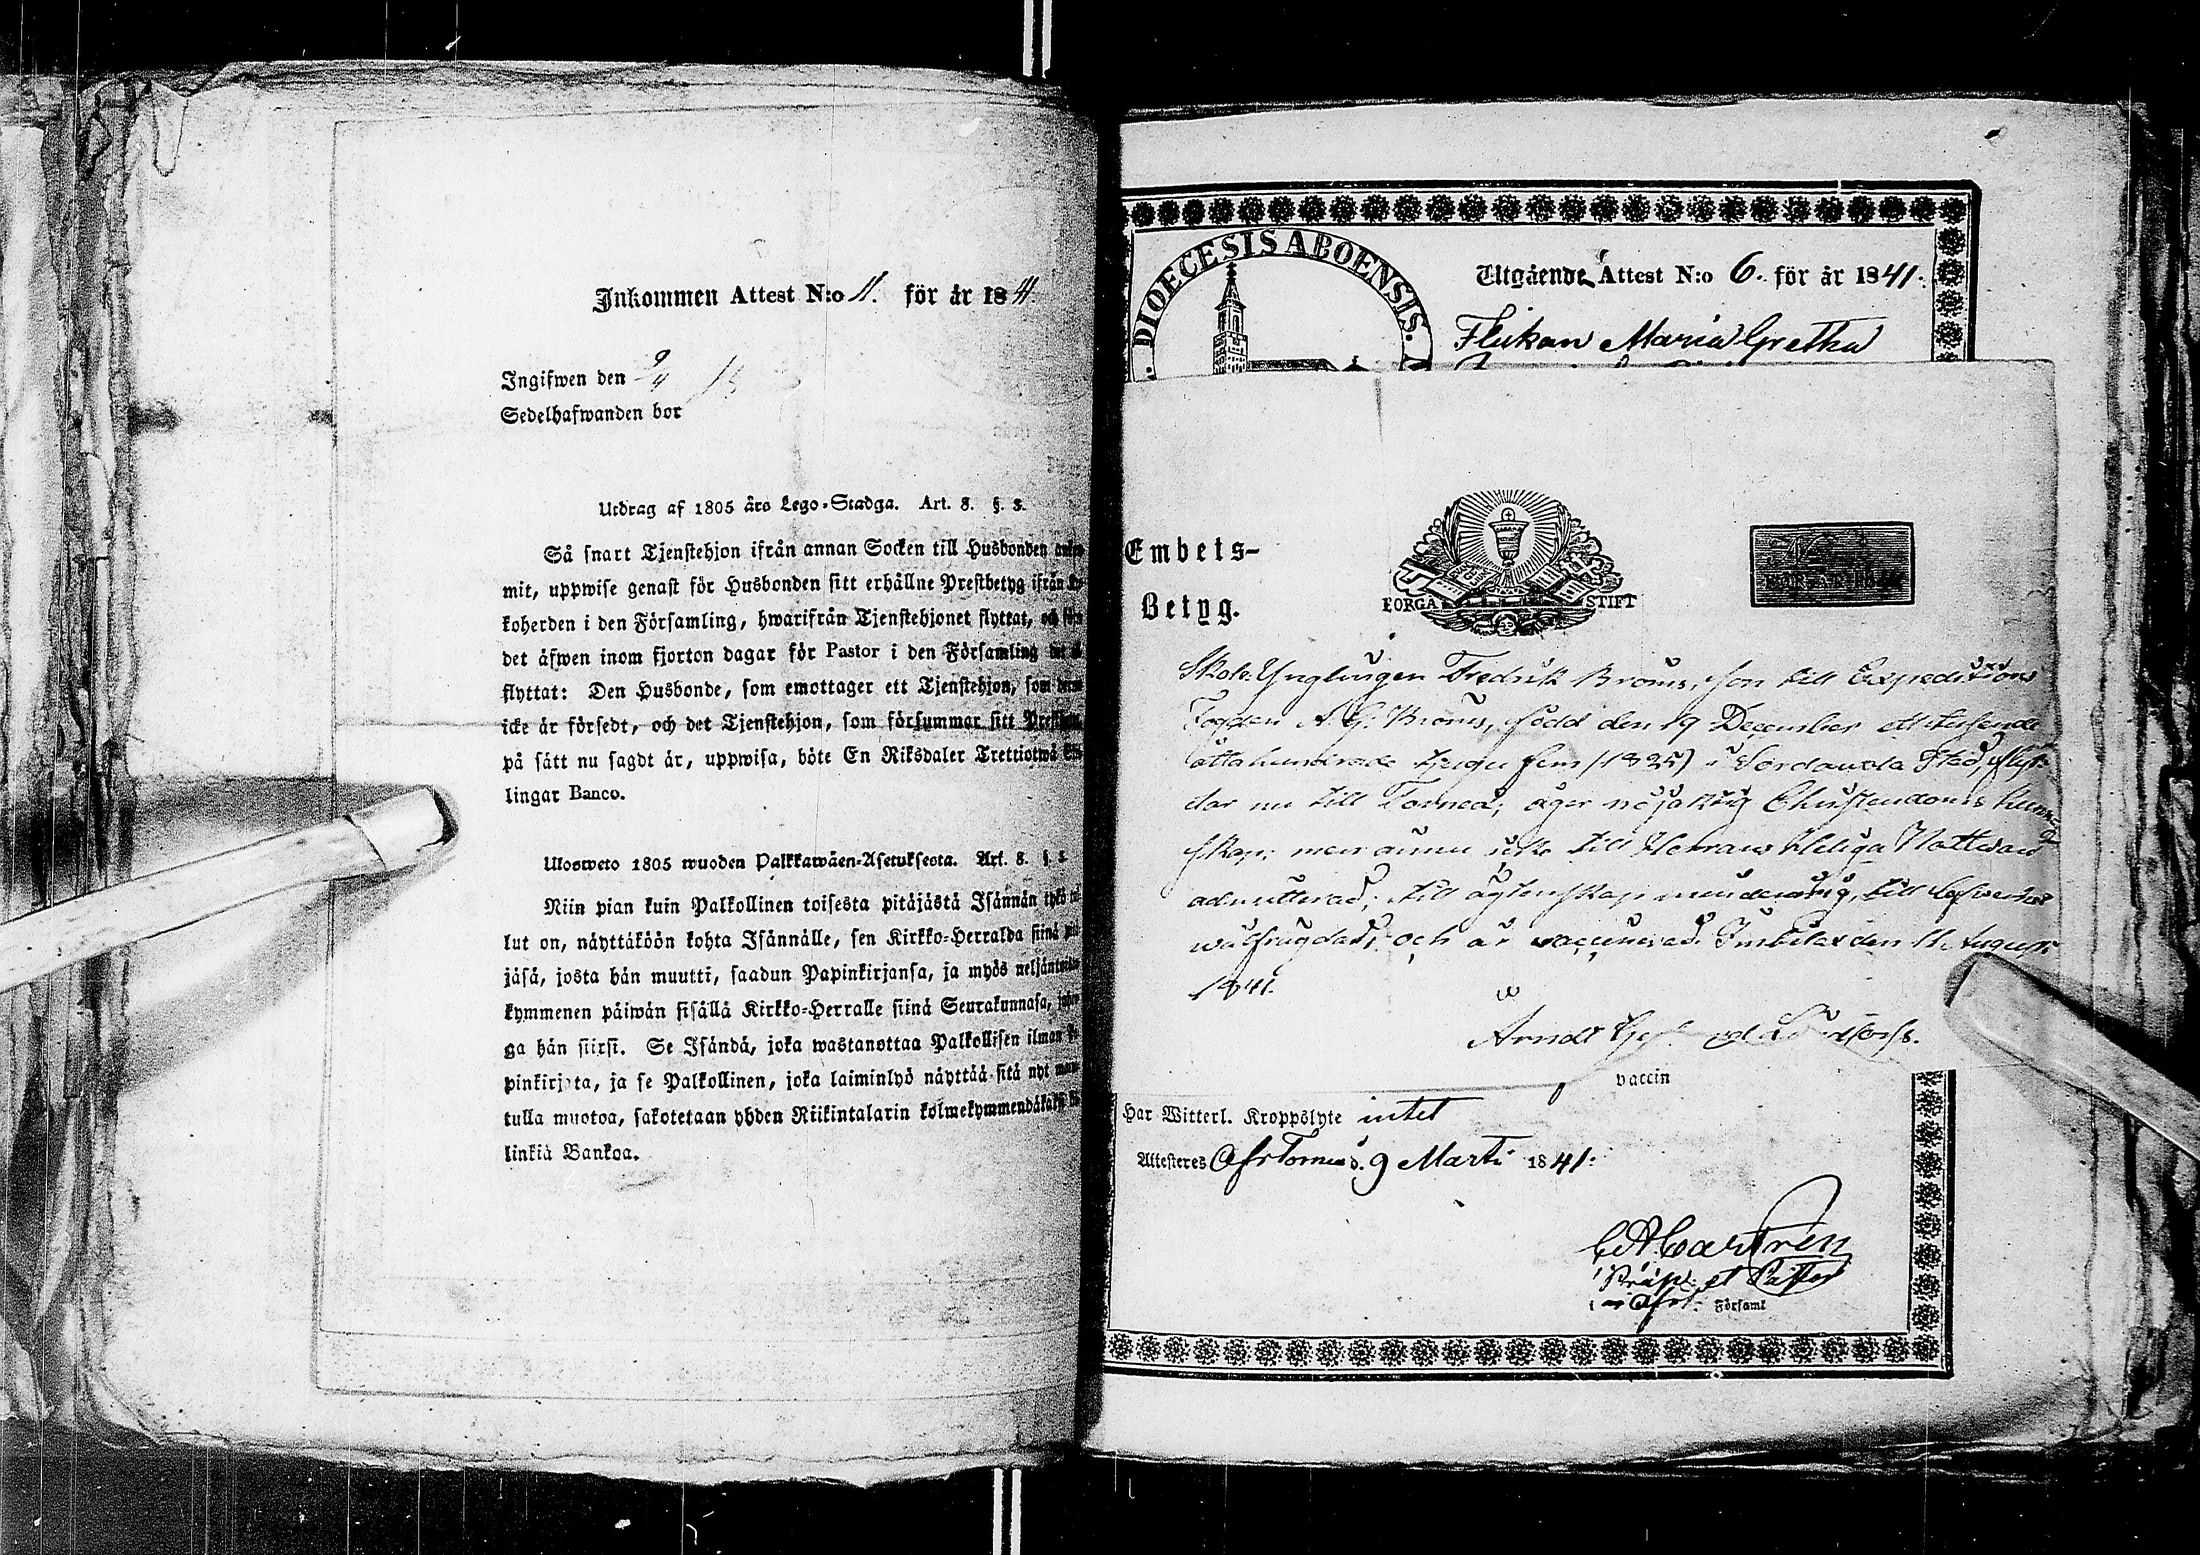 Inkommen Attest N:o 11. för år 1841.
Ingifwen den 9/4
Sedelhafwanden bor
Utdrag af 1805 års Lego-Stadga. Art. 8. §. 3.
Så snart Tjenstehjon ifrån annan Socken till Husbonden
mit, uppwise genast för Husbonden sitt erhållne Prestbetyg ifrån
koherden i den Församling, hwarifrån Tjenstehjonet flyttat, och
det äfwen inom fjorton dagar för Pastor i den Församling
flyttat: Den Husbonde, som emottager ett Tjenstehjon, som
icke är försedt, och det Tjenstehjon, som försummar sitt
på sätt nu sagdt är, uppwisa, böte En Riksdaler Trettiotwå
lingar Banco.
Ulosweto 1805 wuoden Palkkawäen-Asetuksesta. Art. 8. §.
Niin pian kuin Palkollinen toisesta pitäjästä Isännän tykö
lut on, näyttäköön kohta Isännälle, sen Kirkko-Herralda siinä
jäsä, josta hän muutti, saadun Papinkirjansa, ja myös
kymmenen päiwän sisällä Kirkko-Herralle siinä Seurakunnasa,
ga hän siirsi. Se Isändä, joka wastanottaa Palkollisen ilman
pinkirjata, ja se Palkollinen, joka laiminlyö näyttää sitä nyt
tulla muotoa, sakotetaan yhden Riikintalarin kolmekymmendäkaksi
linkiä Bankoa.
DIOECESIS ABOENSIS.
Utgående Attest N:o 6. för år 1841.
Flickan Maria Gretha
Embets-
Betyg.
BORGÅ STIFT
Skole Ynglingen Fredrik Broms, son till Expeditions
Fogden A. G. Broms, född den 19 December ett tusende
åttahundrade tjugu fem (1825) i Sordavala Stad, flyt-
tar nu till Torneå; äger nöjaktig Christendoms kun-
skap; men ännu icke till Herrans Heliga Nattvard
admitterad; till ägtenskap minderårig, till lefwerne
wälfrägdad; och är vaccinerad. Imbilax den 11 Augusti
1841.
Arndt
vaccin
Har Witterl. Kroppslyte intet
Attesteres Nedr Torneå d. 9 Martii 1841.
C A Castrén
Præp. et Pastor
Församl